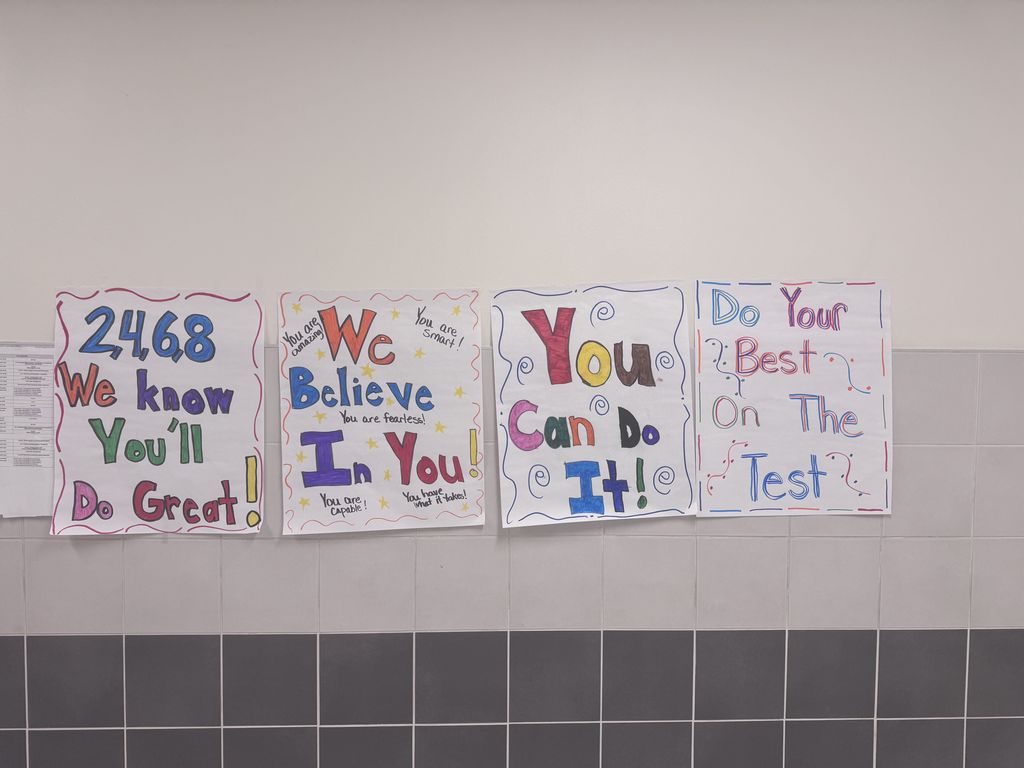 2,4,6,8
We know
You'll
Do Great!
You are amazing
We
You are smart!
Believe
You are fearless!
In You!
You are capable!
You have what it takes!
You
Can Do
It!
Do Your
Best
On The
Test